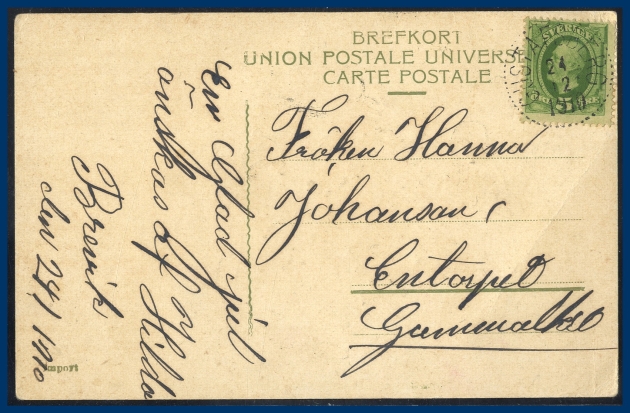 BREFKORT
UNION POSTALE UNIVERSE
CARTE POSTALE
SVERIGE
24
2
1910
Fröken Hanna
Johanson,
Entorpet
En Glad jul
önskas af Hilda
Brevik
den 24/ 1910
Import